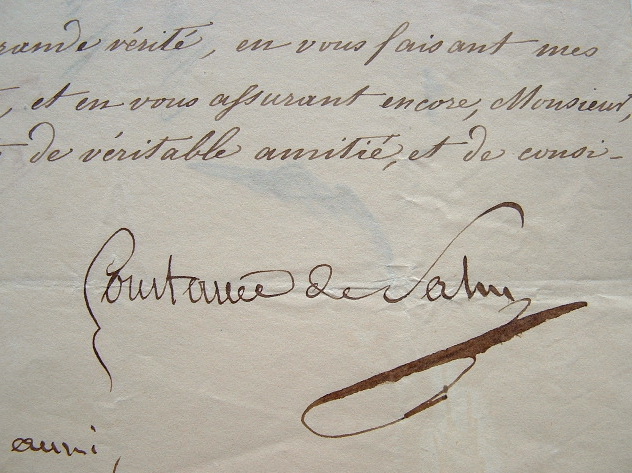 grande vérité, en vous faisant mes
, et en vous assurant encore, Monsieur,
de véritable amitié, et de consi-
Constance de Salm
aussi,